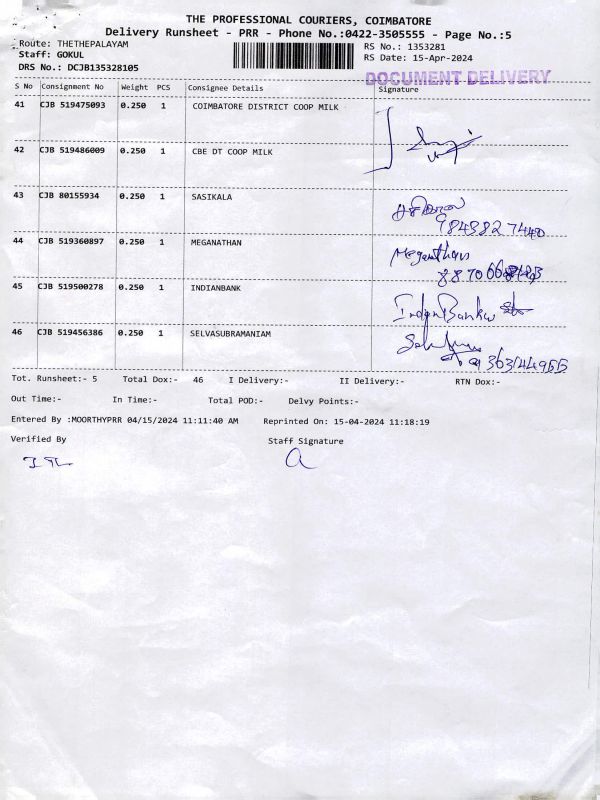 THE PROFESSIONAL COURIERS, COIMBATORE
Delivery Runsheet - PRR - Phone No.:0422-3505555 - Page No.:5
Route: THETHEPALAYAM
Staff: GOKUL
DRS No.: DCJB135328105
RS No.: 1353281
RS Date: 15-Apr-2024
DOCUMENT DELIVERY
S No Consignment No Weight PCS Consignee Details Signature
41 CJB 519475093 0.250 1 COIMBATORE DISTRICT COOP MILK
42 CJB 519486009 0.250 1 CBE DT COOP MILK
43 CJB 80155934 0.250 1 SASIKALA
9843827440
44 CJB 519360897 0.250 1 MEGANATHAN Meganathan
45 CJB 519500278 0.250 1 INDIANBANK
46 CJB 519456386 0.250 1 SELVASUBRAMANIAM
Tot. Runsheet:- 5 Total Dox:- 46 I Delivery:- II Delivery:- RTN Dox:-
Out Time:- In Time:- Total POD:- Delvy Points:-
Entered By :MOORTHYPRR 04/15/2024 11:11:40 AM Reprinted On: 15-04-2024 11:18:19
Verified By Staff Signature